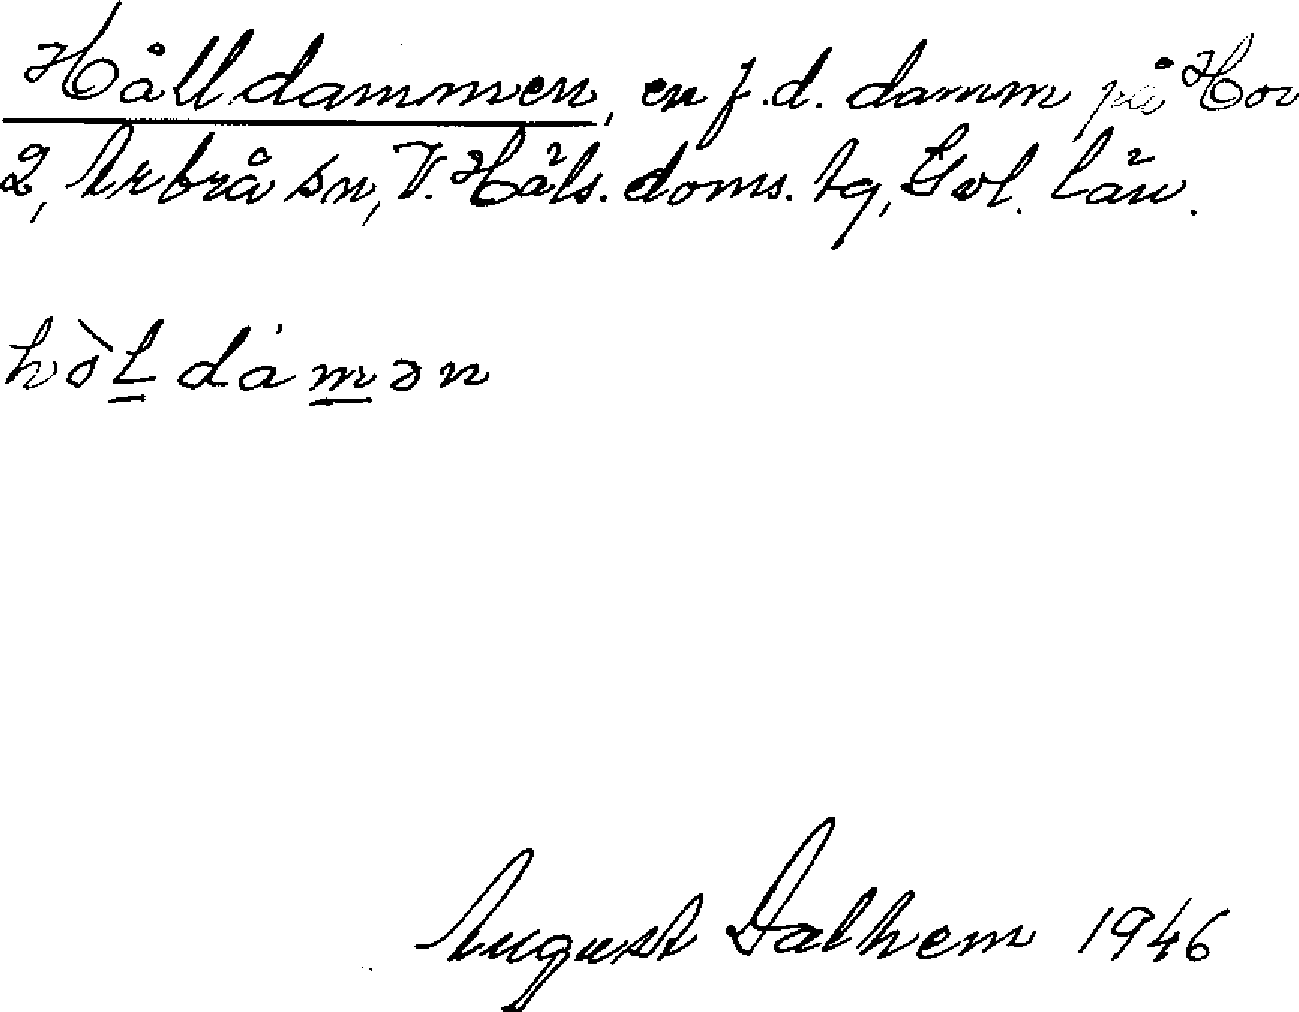 Hålldammen, en f.d. damm på Hov
2, Arbrå sn, V. Häls. doms. tg, Gvl. län.
hòḻdàm̱ən
August Dalhem 1946